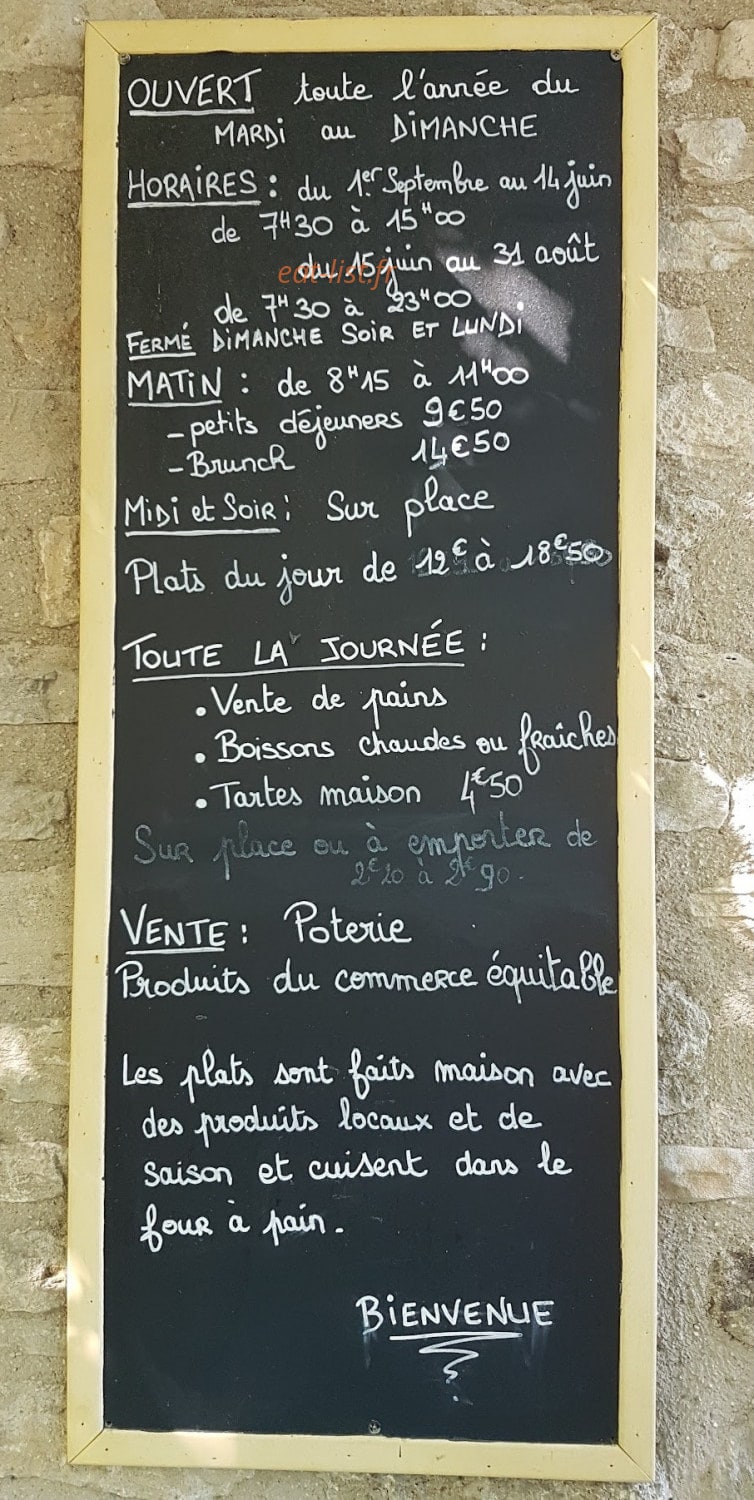 OUVERT toute l'année du
MARDI au DIMANCHE
HORAIRES : du 1er Septembre au 14 juin
de 7H30 à 15H00
du 15 juin au 31 août
eat-list.fr
de 7H30 à 23H00
FERMÉ DIMANCHE SOIR ET LUNDI
MATIN : de 8H15 à 11H00
- petits déjeuners 9€50
- Brunch 14€50
MIDI et SOIR : Sur place
Plats du jour de 12€ à 18€50
TOUTE LA JOURNÉE :
• Vente de pains
• Boissons chaudes ou fraîches
• Tartes maison 4€50
Sur place ou à emporter de
2€20 à 2€90.
VENTE : Poterie
Produits du commerce équitable
Les plats sont faits maison avec
des produits locaux et de
saison et cuisent dans le
four à pain.
BIENVENUE